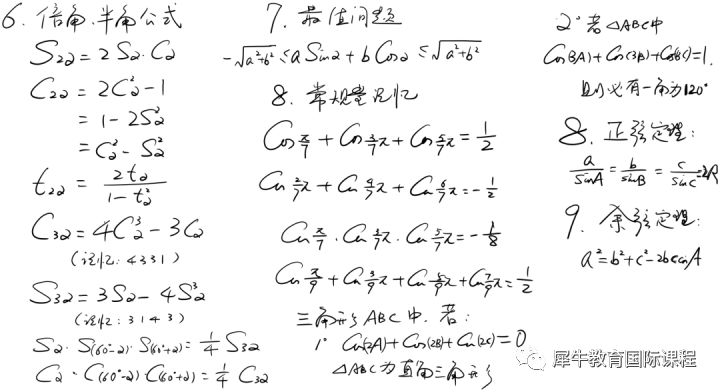 6. 倍角.半角公式
S₂α = 2Sα·Cα
C₂α = 2Cα² - 1
= 1 - 2Sα²
= Cα² - Sα²
t₂α = 2tα / (1 - tα²)
C₃α = 4Cα³ - 3Cα
(记忆: 4331)
S₃α = 3Sα - 4Sα³
(记忆: 3143)
Sα·S(60°-α)·S(60°+α) = 1/4 S₃α
Cα·C(60°-α)·C(60°+α) = 1/4 C₃α
7. 最值问题
-√(a²+b²) ≤ a Sinα + b Cosα ≤ √(a²+b²)
8. 常规量记忆
Cos π/7 + Cos 3/7π + Cos 5/7π = 1/2
Cos 2/7π + Cos 4/7π + Cos 6/7π = -1/2
Cos π/7 · Cos 3/7π · Cos 5/7π = -1/8
Cos π/9 + Cos 3/9π + Cos 5/9π + Cos 7/9π = 1/2
三角形 ABC中, 若:
1° Cos(2A) + Cos(2B) + Cos(2C) = 0
△ABC为直角三角形
2° 若△ABC中
Cos(3A) + Cos(3B) + Cos(3C) = 1.
则必有一角为120°
8. 正弦定理:
a/sinA = b/sinB = c/sinC = 2R
9. 余弦定理:
a² = b² + c² - 2bccosA
犀牛教育国际课程